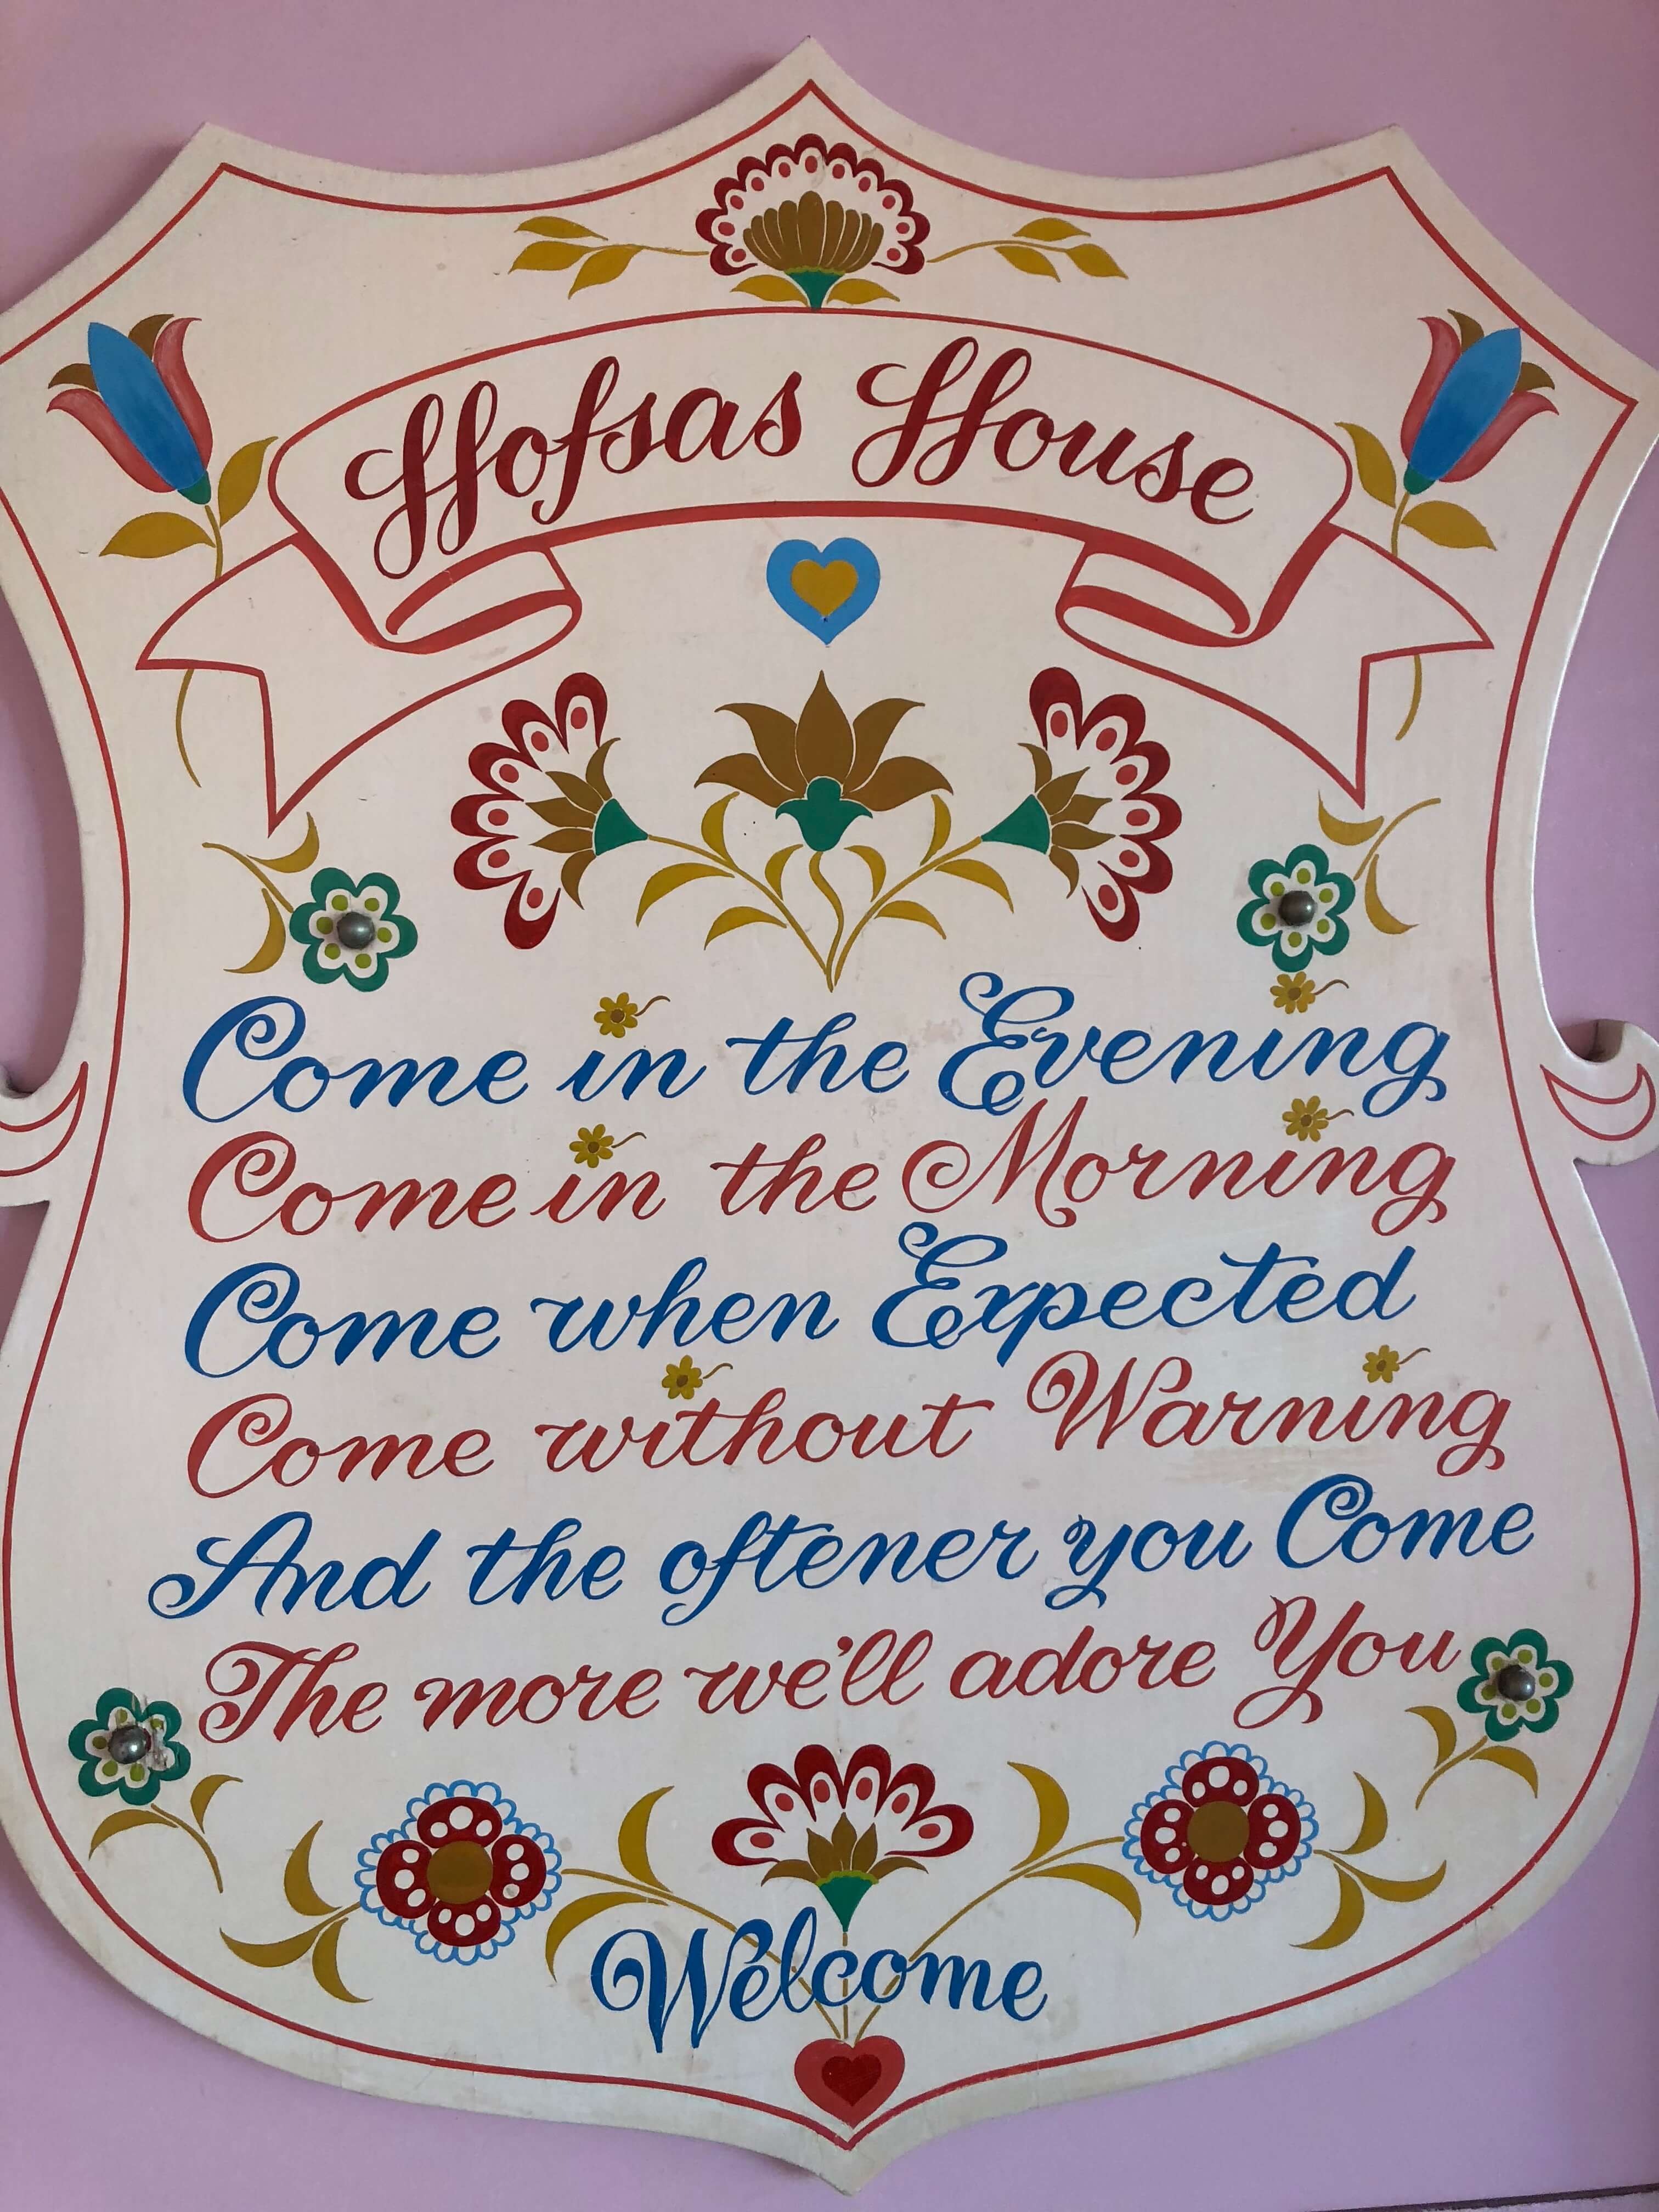 Hofsas House
Come in the Evening
Come in the Morning
Come when Expected
Come without Warning
And the oftener you Come
The more we'll adore You
Welcome